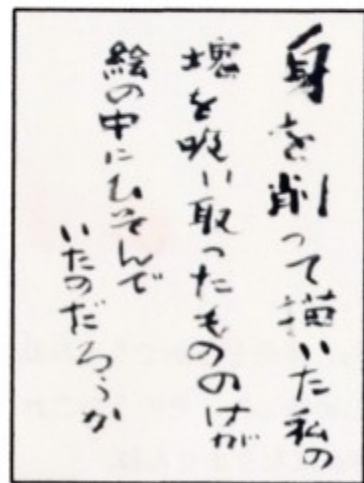 身を削って描いた私の
魂を吸い取ったもののけが
絵の中にひそんで
いたのだろうか